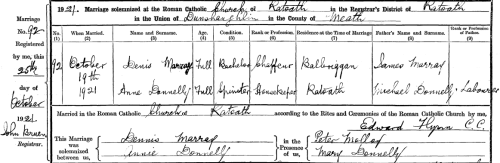 1921. Marriage solemnized at the Roman Catholic Church of Ratoath in the Registrar's District of Ratoath
in the Union of Dunshaughlin in the County of Meath
Marriage
No. 92
Registered
by me, this
25th
day of
October
1921
John Bruen
Registrar.
No. When Married. Name and Surname. Age. Condition. Rank or Profession. Residence at the Time of Marriage Father's Name and Surname. Rank or Profession of Father.
(1) (2) (3) (4) (5) (6) (7) (8) (9)
92 October Denis Murray Full Bachelor Chaffeur Balbriggan James Murray
19th
1921 Anne Donnelly Full Spinster Housekeeper Ratoath Michael Donnelly Labourer
Married in the Roman Catholic Church of Ratoath according to the Rites and Ceremonies of the Roman Catholic Church by me,
Edward Flynn C.C.
This Marriage was solemnized between us, Dennis Murray In the Presence of us, Peter Molloy
Annie Donnelly Mary Donnelly